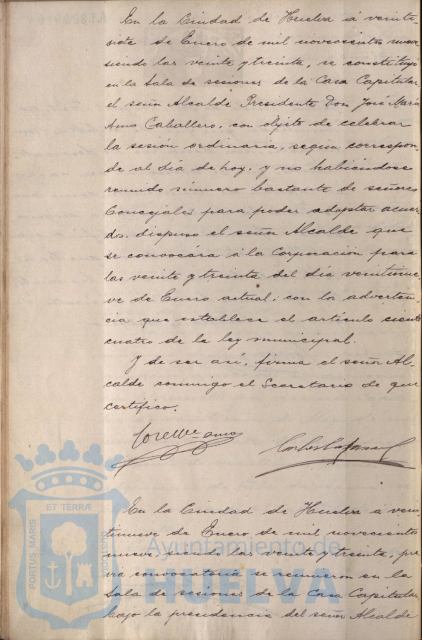 En la Ciudad de Huelva á veinti-
siete de Enero de mil novecientos nueve
siendo las veinte y treinta, se constituyó
en la Sala de sesiones de la Casa Capitular
el señor Alcalde Presidente Don José María
Amo Caballero, con objeto de celebrar
la sesión ordinaria, según correspon-
de al día de hoy, y no habiéndose
reunido número bastante de señores
Concejales para poder adoptar acuer-
dos, dispuso el señor Alcalde que
se convocára á la Corporación para
las veinte y treinta del día veintinue-
ve de Enero actual, con la adverten-
cia que establece el artículo ciento
cuatro de la ley municipal.
Y de ser así, firma el señor Al-
calde conmigo el Secretario de que
certifico.
En la Ciudad de Huelva á vein-
tinueve de Enero de mil novecientos
nueve siendo las veinte y treinta, pre-
via convocatoria se reunieron en la
Sala de sesiones de la Casa Capitular
bajo la presidencia del señor Alcalde
PORTUS MARIS
ET TERRÆ
Ayuntamiento de
HUELVA